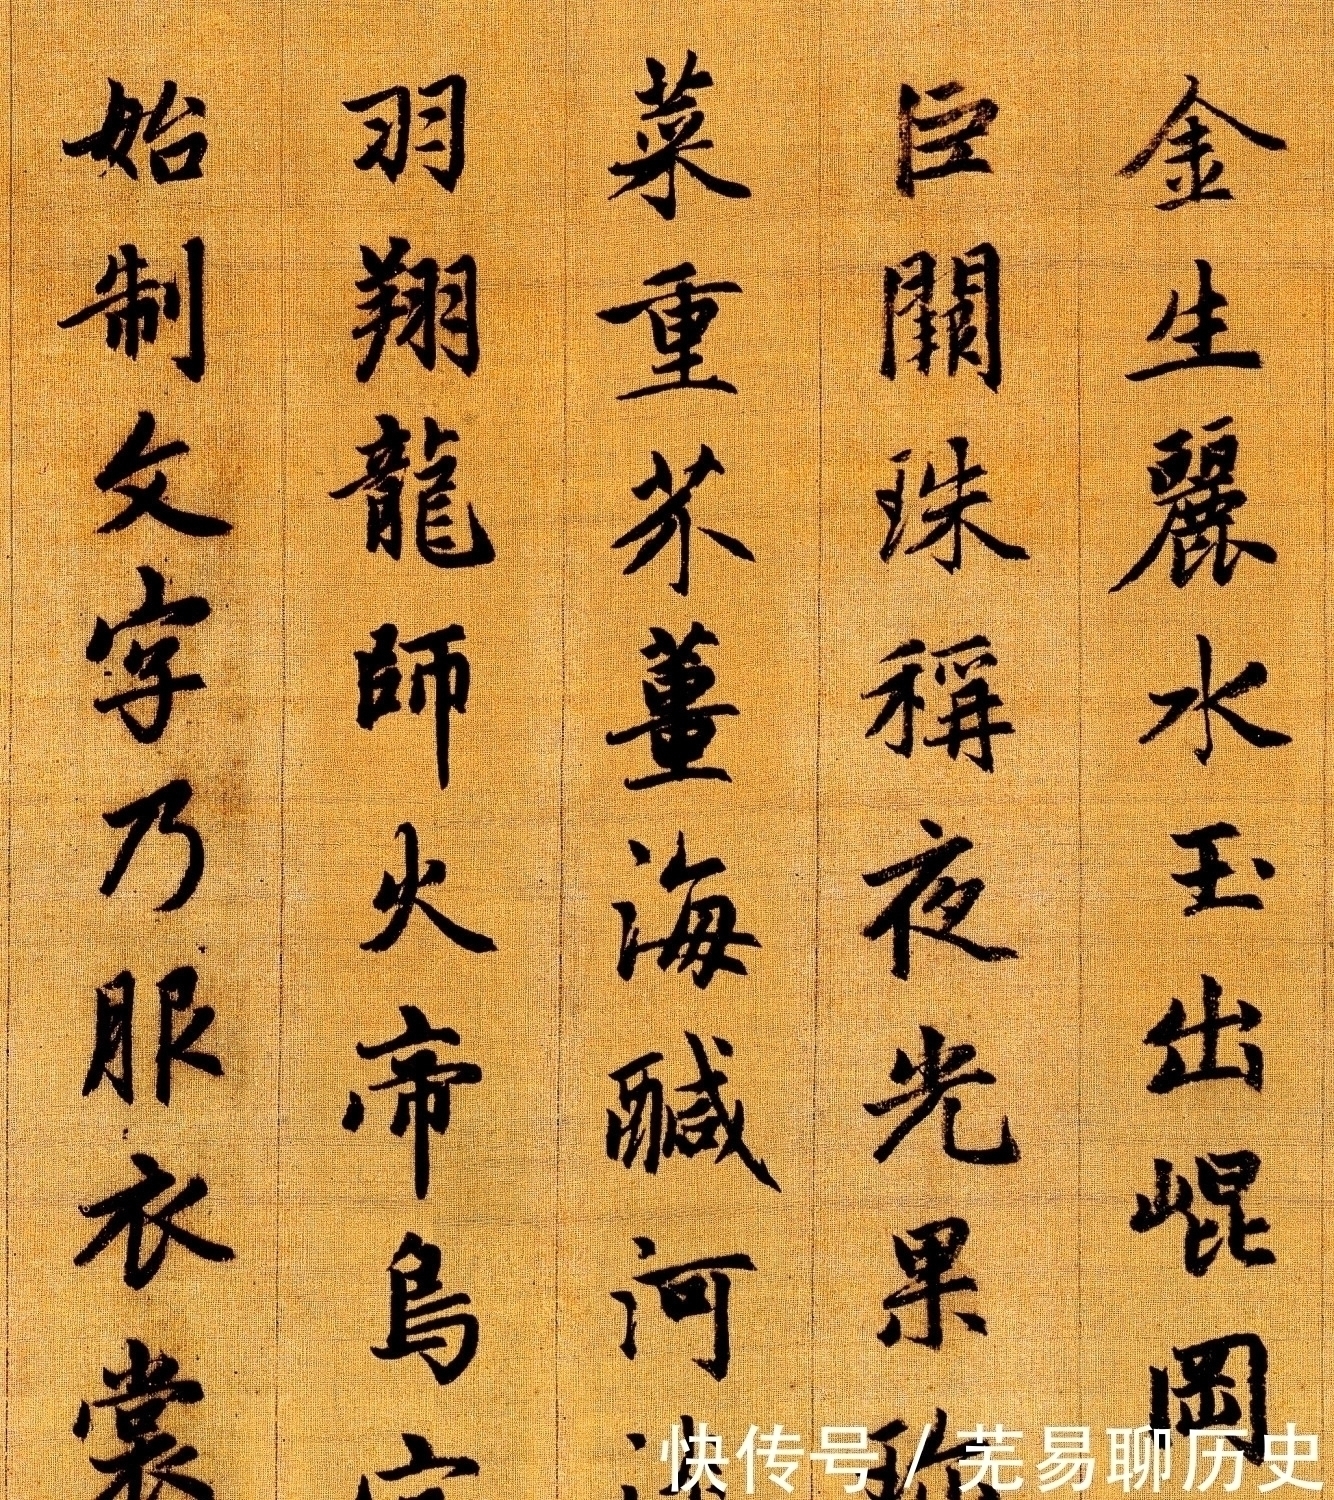 金生麗水玉出崐岡
巨闕珠稱夜光果珍
菜重芥薑海醎河淡
羽翔龍師火帝鳥官
始制文字乃服衣裳
快传号/芜易聊历史